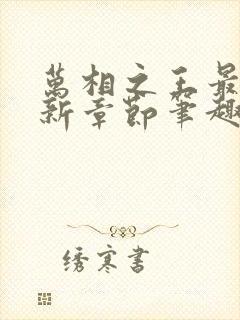 萬相之王最
新章節筆趣
绣寒書